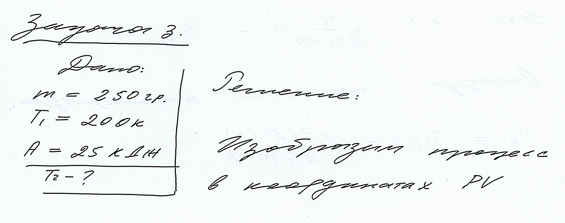 Задача 3.
Дано:
m = 250 гр.
T₁ = 200к
A = 25 кДж
T₂ - ?
Решение:
Изобразим процесс
в координатах PV